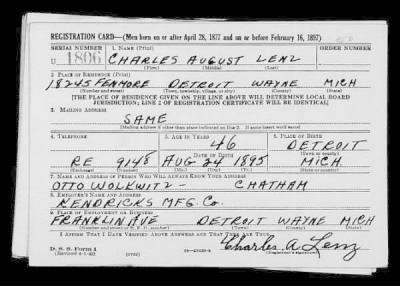 REGISTRATION CARD—(Men born on or after April 28, 1877 and on or before February 16, 1897)
SERIAL NUMBER 1. NAME (Print) ORDER NUMBER
U 1806 CHARLES AUGUST LENZ
(First) (Middle) (Last)
2. PLACE OF RESIDENCE (Print)
18245 FENMORE DETROIT WAYNE MICH
(Number and street) (Town, township, village, or city) (County) (State)
[THE PLACE OF RESIDENCE GIVEN ON THE LINE ABOVE WILL DETERMINE LOCAL BOARD
JURISDICTION; LINE 2 OF REGISTRATION CERTIFICATE WILL BE IDENTICAL]
3. MAILING ADDRESS
SAME
[Mailing address if other than place indicated on line 2. If same insert word same]
4. TELEPHONE 5. AGE IN YEARS 6. PLACE OF BIRTH
46 DETROIT
DATE OF BIRTH (Town or county)
RE 9148 AUG 24 1895 MICH
(Exchange) (Number) (Mo.) (Day) (Yr.) (State or country)
7. NAME AND ADDRESS OF PERSON WHO WILL ALWAYS KNOW YOUR ADDRESS
OTTO WOLKWITZ — CHATHAM
8. EMPLOYER'S NAME AND ADDRESS
KENDRICKS MFG. Co.
9. PLACE OF EMPLOYMENT OR BUSINESS
FRANKLIN AVE DETROIT WAYNE MICH
(Number and street or R. F. D. number) (Town) (County) (State)
I AFFIRM THAT I HAVE VERIFIED ABOVE ANSWERS AND THAT THEY ARE TRUE.
D. S. S. Form 1 Charles A Lenz
(Revised 4-1-42) (over) (Registrant's signature)